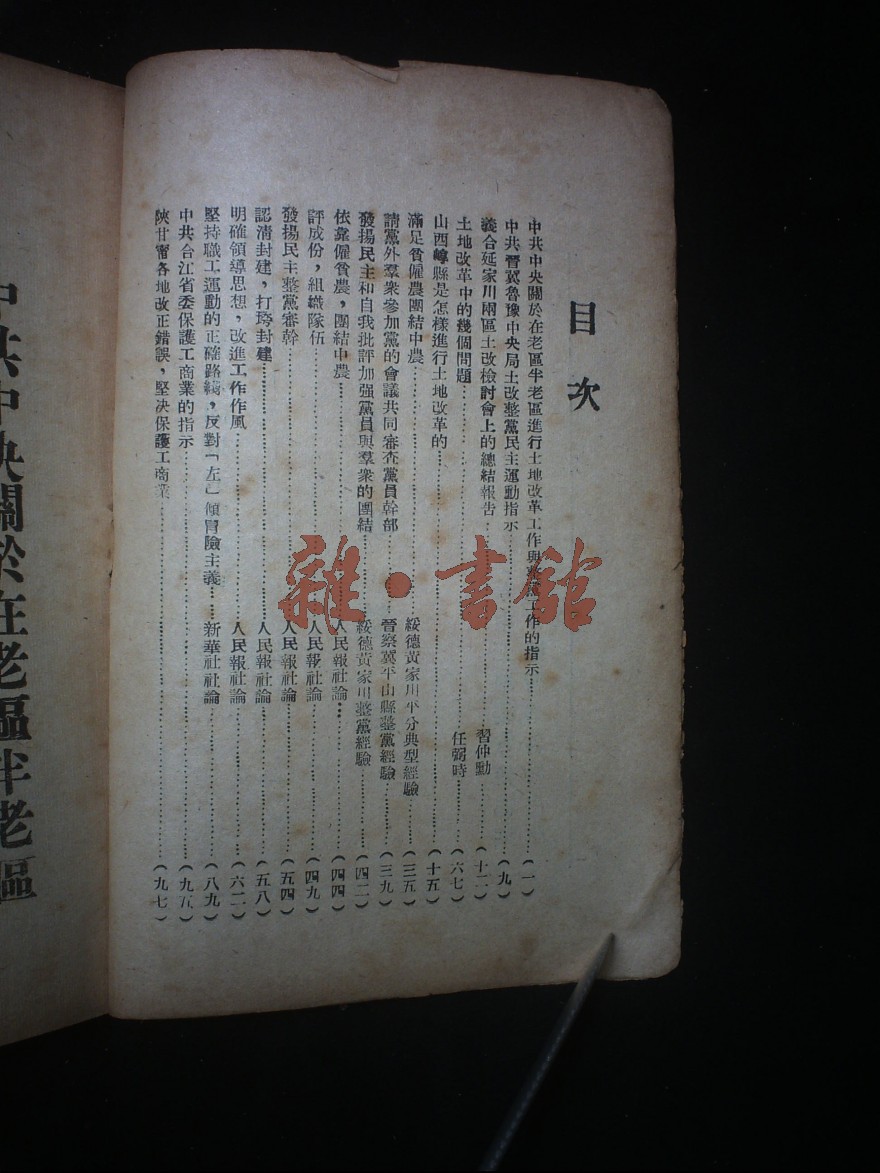 目次
中共中央關於在老區半老區進行土地改革工作與整黨工作的指示……(一)
中共晉冀魯豫中央局土改整黨民主運動指示……(九)
義合延家川兩區土改檢討會上的總結報告……習仲勳……(十二)
土地改革中的幾個問題……任弼時……(六七)
山西崞縣是怎樣進行土地改革的……(十五)
滿足貧僱農團結中農……綏德黃家川平分典型經驗……(三五)
請黨外羣衆參加黨的會議共同審查黨員幹部……晉察冀平山縣整黨經驗……(三九)
發揚民主和自我批評加强黨員與羣衆的團結……綏德黃家川整黨經驗……(四二)
依靠僱貧農,團結中農……人民報社論……(四四)
評成份,組織隊伍……人民報社論……(四九)
發揚民主整黨審幹……人民報社論……(五四)
認清封建,打垮封建……人民報社論……(五八)
明確領導思想,改進工作作風……人民報社論……(六二)
堅持職工運動的正確路綫,反對「左」傾冒險主義……新華社社論……(八九)
中共合江省委保護工商業的指示……(九五)
陝甘寗各地改正錯誤,堅决保護工商業……(九七)
雜·書館
中共中央關於在老區半老區